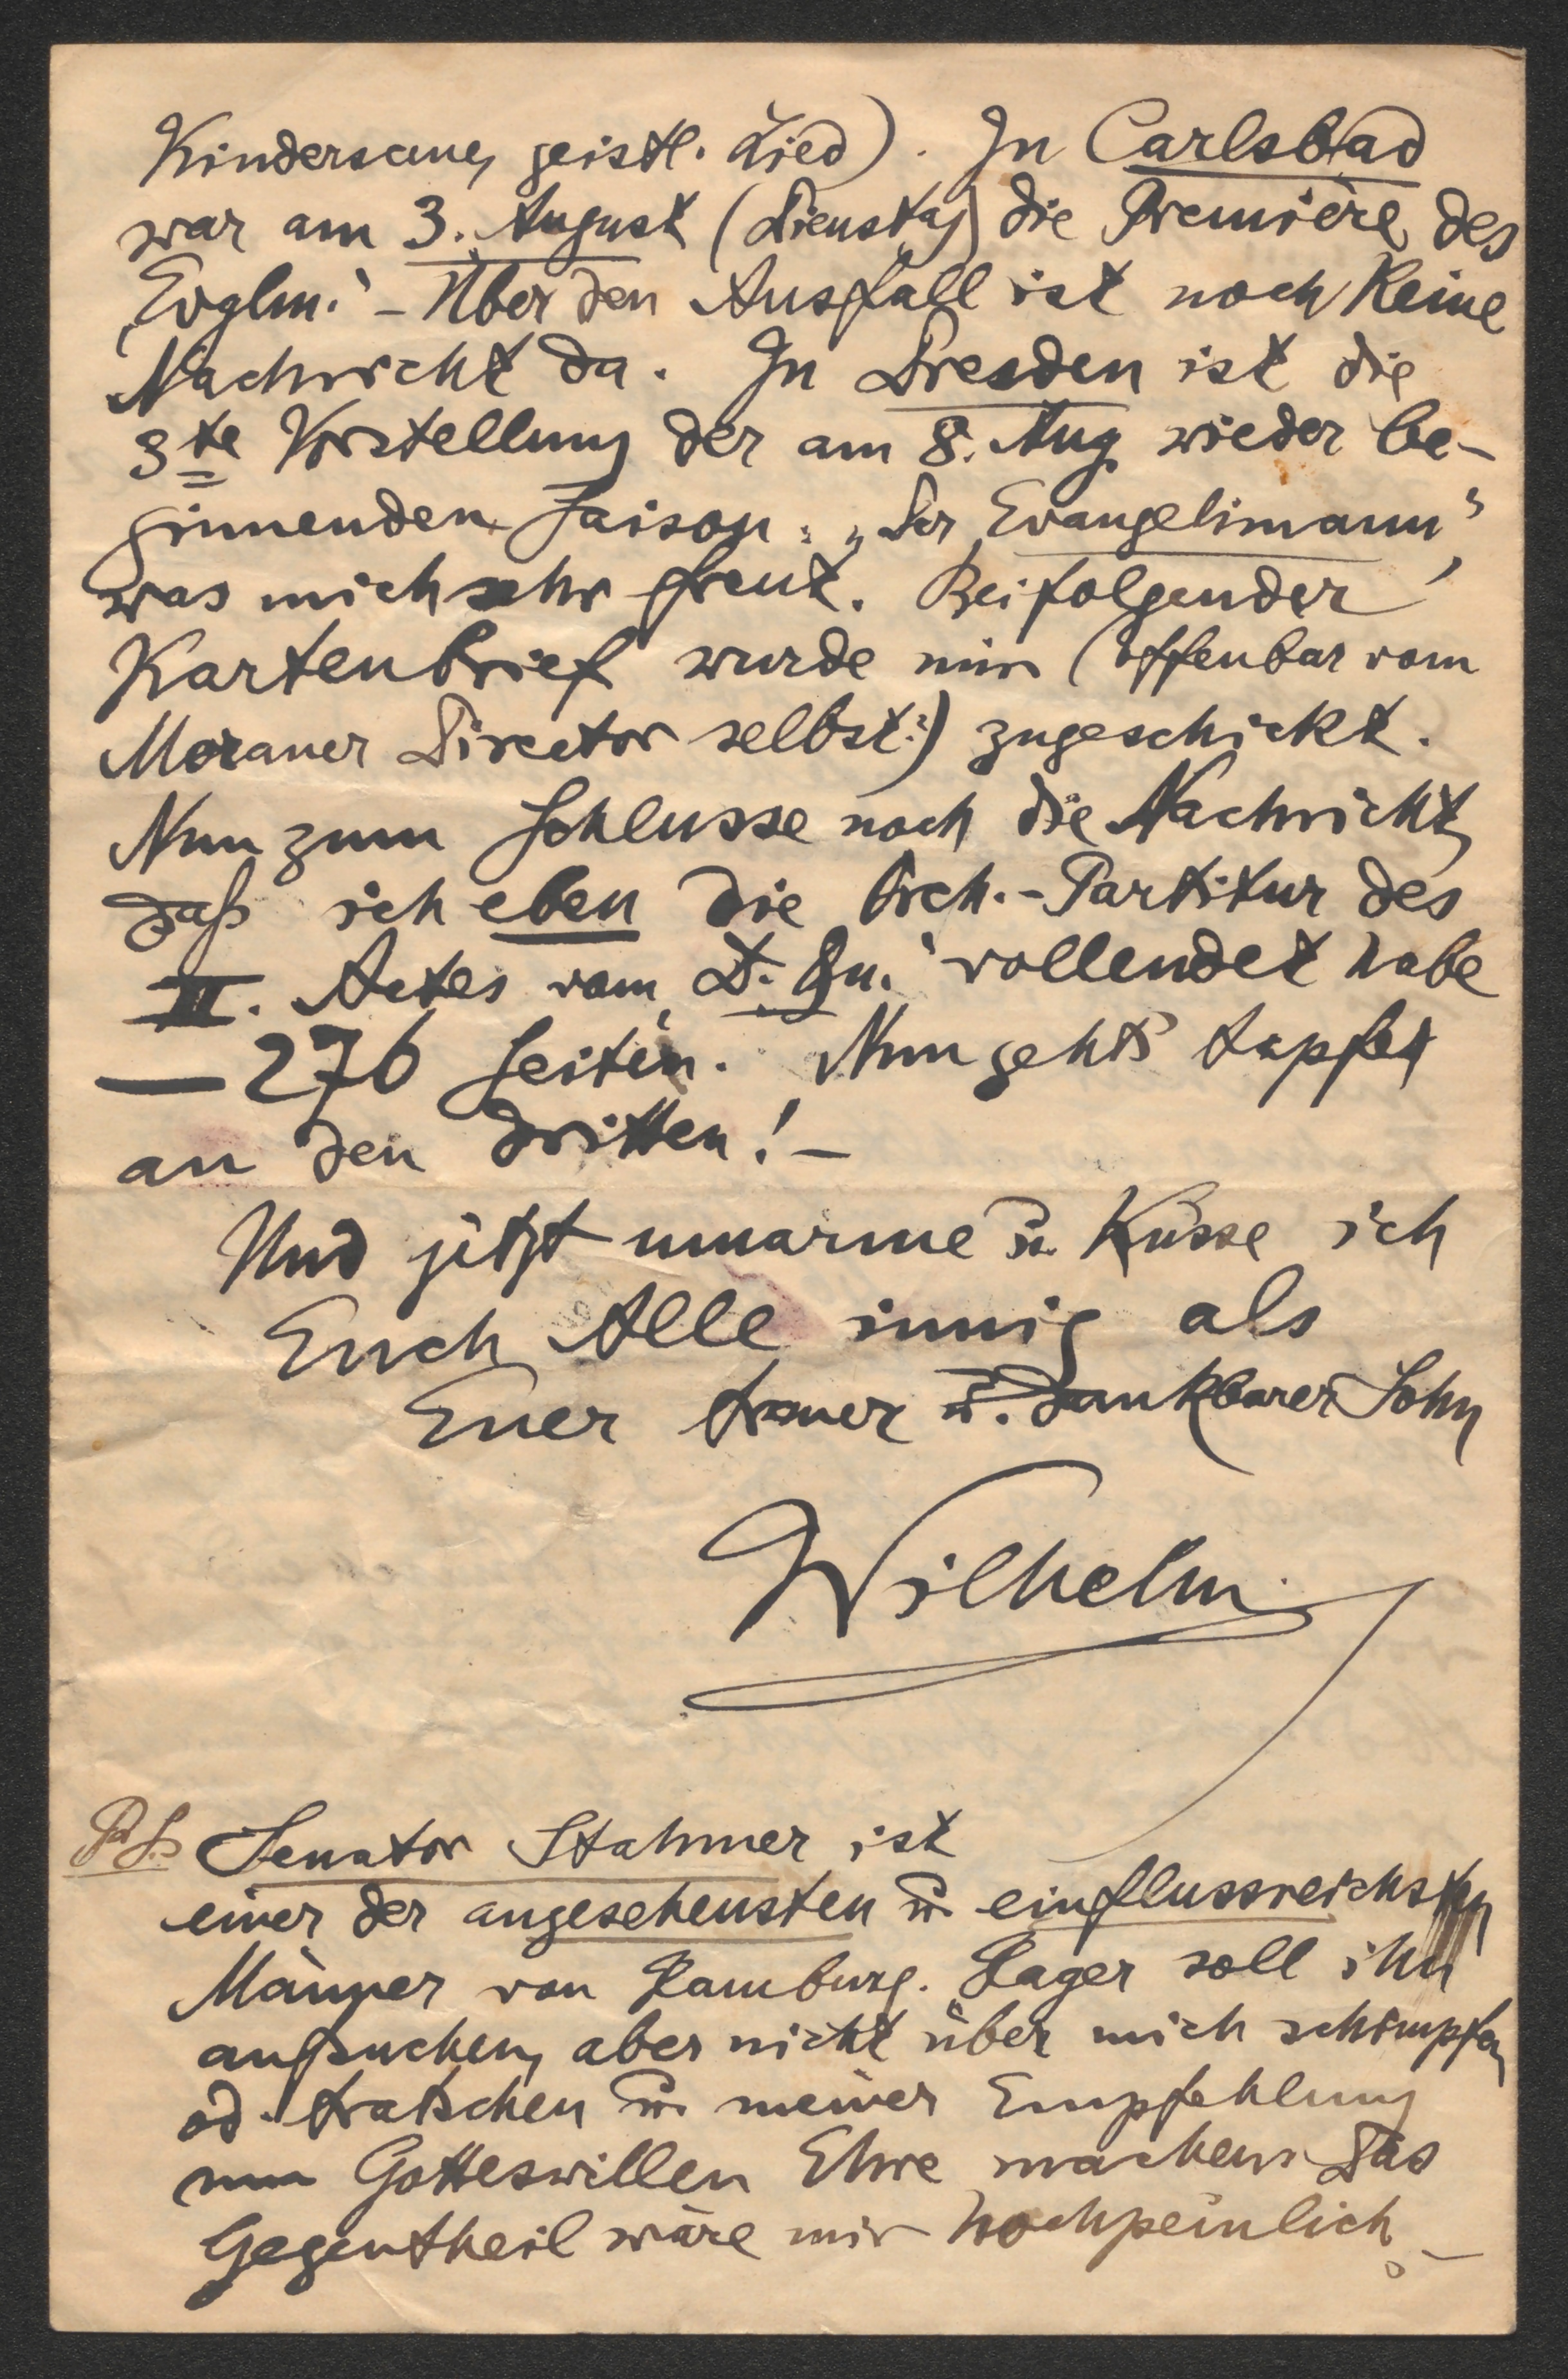 Kindersang, geistl. Lied). In Carlsbad
war am 3. August (Dienstag) die Première des
‚Evglm.‘ – Über den Ausfall ist noch keine
Nachricht da. In Dresden ist die
3te Vorstellung der am 8. Aug wieder be-
ginnenden Saison: „Der Evangelimann“,
was mich sehr freut. Beifolgender
Kartenbrief wurde mir (offenbar vom
Meraner Director selbst?) zugeschickt.
Nun zum Schlusse noch die Nachricht,
daß ich eben die Orch.-Partitur des
II. Actes vom ‚D. Qu.‘ vollendet habe
— 276 Seiten. Nun gehts tapfer
an den dritten! –
Und jetzt umarme u. Küsse ich
Euch Alle innig als
Euer treuer u. dankbarer Sohn
Wilhelm.
PS. Senator Stahmer ist
einer der angesehensten u. einflussreichsten
Männer von Hamburg. Hager soll ihn
aufsuchen, aber nicht über mich schimpfen
od. tratschen u. meiner Empfehlung
um Gotteswillen Ehre machen. Das
Gegentheil wäre mir hochpeinlich. –